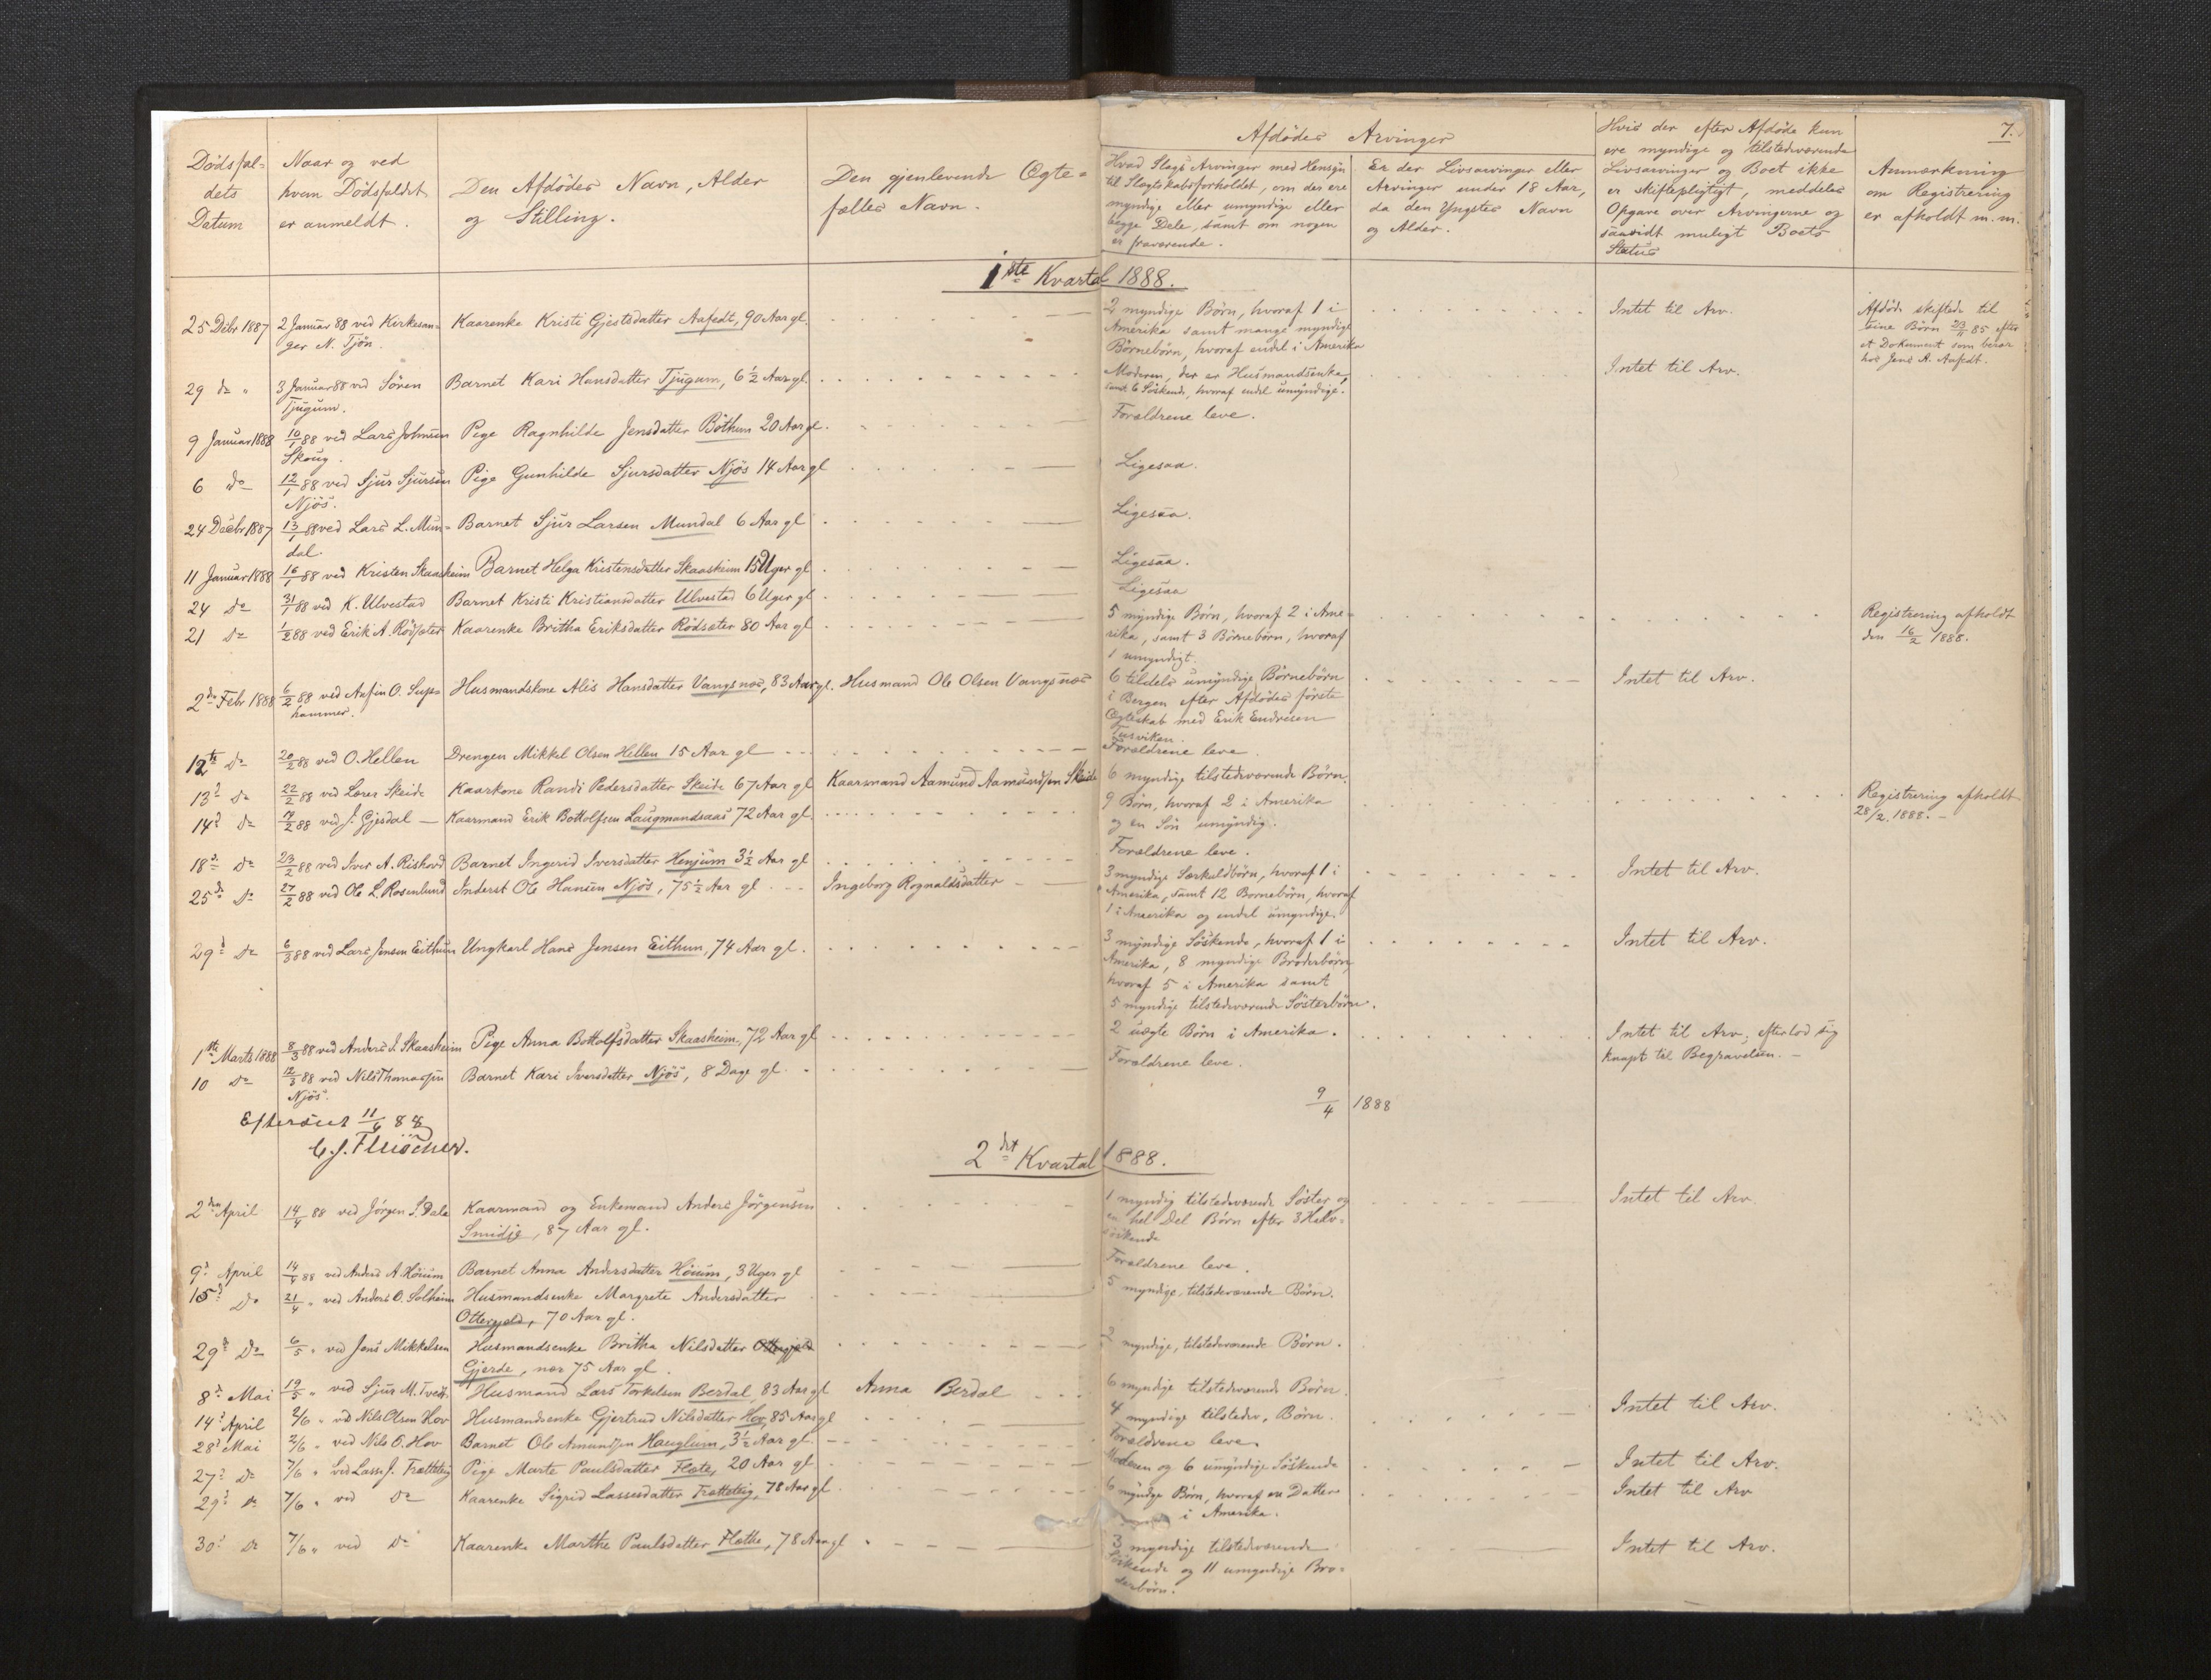 7.
Dødsfal=
dets
Datum
Naar og ved
hvem Dødsfaldet
er anmeldt.
Den Afdødes Navn, Alder
og Stilling.
Den gjenlevende Ægte=
fælles Navn.
Afdødes Arvinger
Hvad Slags Arvinger med Hensyn
til Slagtskabsforholdet, om der ere
myndige eller umyndige eller
begge Dele, samt om nogen
er fraværende.
Er der Livsarvinger eller
Arvinger under 18 Aar,
da den Yngstes Navn
og Alder.
Hvis der efter Afdøde kun
ere myndige og tilstedeværende
Livsarvinger og Boet ikke
er skiftepligtigt, meddeles
Opgave over Arvingerne og
saavidt muligt Boets
Status
Anmærkning
om Registrering
er afholdt m. m.
1ste Kvartal 1888.
25 Debr 1887 2 Januar 88 ved Kirkesan= Kaarenke Kristi Gjestsdatter Aafedt, 90 Aar gl. 2 myndige Børn, hvoraf 1 i Intet til Arv. Afdøde skiftede til
ger N. Tjøn. Amerika samt mange myndige sine Børn 23/4 85 efter
Børnebørn, hvoraf endel i Amerika et Dokument som beror
hos Jens A. Aafedt.
29 do " 3 Januar 88 ved Søren Barnet Kari Hansdatter Tjugum, 6 1/2 Aar gl. Moderen, der er Husmandsenke, Intet til Arv.
Tjugum. samt 6 Søskende, hvoraf endel umyndige.
9 Januar 1888 10/1 88 ved Lars Johnsen Pige Ragnhilde Jensdatter Bøthun 20 Aar gl. Forældrene leve.
Skoug.
6 do 12/1 88 ved Sjur Sjursen Pige Gunhilde Sjursdatter Njøs 14 Aar gl Ligesaa.
Njøs.
24 Decbr 1887 13/1 88 ved Lars L. Mun= Barnet Sjur Larsen Mundal 6 Aar gl Ligesaa.
dal.
11 Januar 1888 16/1 88 ved Kristen Skaasheim Barnet Helga Kristensdatter Skaasheim 15 Uger gl Ligesaa.
24 do 31/1 88 ved K. Ulvestad Barnet Kristi Kristiansdatter Ulvestad 6 Uger gl Ligesaa
21 do 1/2 88 ved Erik A. Rødsæter Kaarenke Britha Eriksdatter Rødsæter 80 Aar gl 5 myndige Børn, hvoraf 2 i Ame= Registrering afholdt
rika, samt 3 Børnebørn, hvoraf den 16/2 1888.
1 umyndigt.
2de Febr 1888 6/2 88 ved Aafin O. Supe= Husmandskone Alis Hansdatter Vangsnæs, 83 Aar gl. Husmand Ole Olsen Vangsnæs 6 tildels umyndige Børnebørn Intet til Arv.
hammer. i Bergen efter Afdødes første
Ægteskab med Erik Endresen
Turviken.
12te do 20/2 88 ved O. Hellen Drengen Mikkel Olsen Hellen 15 Aar gl Forældrene leve.
13d do 22/2 88 ved Lorer Skeide Kaarkone Randi Pedersdatter Skeide 67 Aar gl Kaarmand Aamund Aamundsen Skeide 6 myndige tilstedeværende Børn.
14d do 17/2 88 ved J. Gjesdal Kaarmand Erik Bottolfsen Laugmandsaas 72 Aar gl. 9 Børn, hvoraf 2 i Amerika Registrering afholdt
og en Søn umyndig. 28/2. 1888.
18d do 23/2 88 ved Iver A. Riskord Barnet Ingerid Iversdatter Henjum 3 1/2 Aar gl Forældrene leve.
25de do 27/2 88 ved Ole L. Rosenlund Inderst Ole Hansen Njøs, 75 1/2 Aar gl Ingeborg Rognaldsdatter 3 myndige Særkuldbørn, hvoraf 1 i Intet til Arv.
Amerika, samt 12 Børnebørn, hvoraf
1 i Amerika og endel umyndige.
29d do 6/3 88 ved Lars Jensen Eithun Ungkarl Hans Jensen Eithun, 74 Aar gl. 3 myndige Søskende, hvoraf 1 i Intet til Arv.
Amerika, 8 myndige Broderbørn,
hvoraf 5 i Amerika samt
5 myndige tilstedeværende Søsterbørn.
1ste Marts 1888 8/3 88 ved Anders J. Skaasheim Pige Anna Bottolfsdatter Skaasheim, 72 Aar gl 2 uægte Børn i Amerika. Intet til Arv, efterlod sig
knapt til Begravelsen.
10 do 12/3 88 ved Nils Thomassen Barnet Kari Iversdatter Njøs, 8 Dage gl. Forældrene leve.
Njøs.
9/4 1888
Efterseet 11/6 88
C. J. Fleischer.
2det Kvartal 1888.
2den April 14/4 88 ved Jørgen S. Dale Kaarmand og Enkemand Anders Jørgensen 1 myndig tilstedeværende Søster og Intet til Arv
Smidje, 87 Aar gl. en hel Del Børn efter 3 Halv=
søskende
9d April 14/4 88 ved Anders A. Høium Barnet Anna Andersdatter Høium, 3 Uger gl Forældrene leve.
15d do 21/4 " ved Anders O. Solheim Husmandsenke Margrete Andersdatter 5 myndige, tilstedeværende Børn.
Ottergjeld, 70 Aar gl.
29d do 6/5 " ved Jens Mikkelsen Husmandsenke Britha Nilsdatter Ottergjeld 2 myndige, tilstedeværende Børn.
Gjerde, nær 75 Aar gl.
8d Mai 19/5 " ved Sjur M. Tvedt Husmand Lars Torkelsen Berdal, 83 Aar gl Anna Berdal 6 myndige tilstedeværende Børn.
14d April 2/6 " ved Nils Olsen Hov Husmandsenke Gjertrud Nilsdatter Hov, 85 Aar gl 4 myndige tilstedev. Børn. Intet til Arv.
28d Mai 2/6 " ved Nils O. Hov Barnet Ole Amundsen Hauglum, 3 1/2 Aar gl. Forældrene leve.
27d do 7/6 " ved Lasse J. Trætteteig Pige Marte Paulsdatter Flete, 20 Aar gl Moderen og 6 umyndige Søskende Intet til Arv.
29d do 7/6 " ved do Kaarenke Sigrid Lassesdatter Trætteteig, 78 Aar gl. 6 myndige Børn, hvoraf en Datter Intet til Arv
i Amerika.
30d do 7/6 " ved do Kaarenke Marthe Paulsdatter Flæthe, 78 Aar gl 3 myndige tilstedeværende Intet til Arv.
Søskende og 11 umyndige Bro=
derbørn.